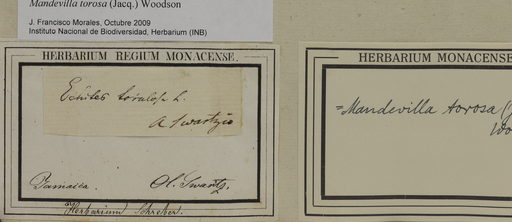 Mandevilla torosa (Jacq.) Woodson
J. Francisco Morales, Octubre 2009
Instituto Nacional de Biodiversidad, Herbarium (INB)
HERBARIUM REGIUM MONACENSE.
Echites torulosa L.
a Swartzio
Jamaica. Ol. Swartz.
Herbarium Schreber.
HERBARIUM MONACENSE
=Mandevilla torosa (J
Wo